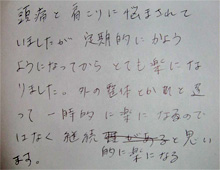 頭痛と肩こりに悩まされて
いましたが 定期的にかよう
ようになってから とても楽にな
りました。外の整体とかと違
って 一時的に楽になるので
はなく 継続 があると思い
的に楽になる
ます。